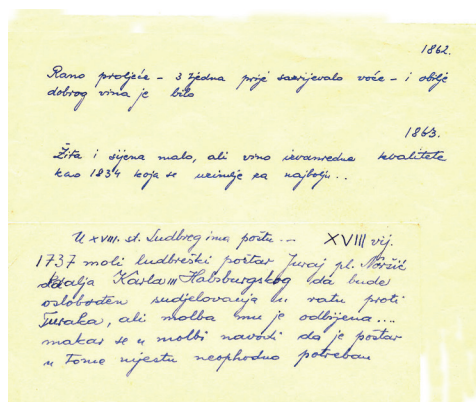 1862.
Rano proljeće - 3 tjedna prije sazrijevalo voće - i obilje
dobrog vina je bilo
1863.
Žita i sijena malo, ali vino izvanredne kvalitete
kao 1834 koja se uzimlje za najbolju..
U XVIII. st. Ludbreg ima poštu... XVIII vij.
1737 moli ludbreški poštar Juraj pl.
Karla III Habsburgskog da bude
oslobođen sudjelovanja u ratu proti
Turaka, ali molba mu je odbijena...
makar se u molbi navodi da je poštar
u tome mjestu neophodno potreban